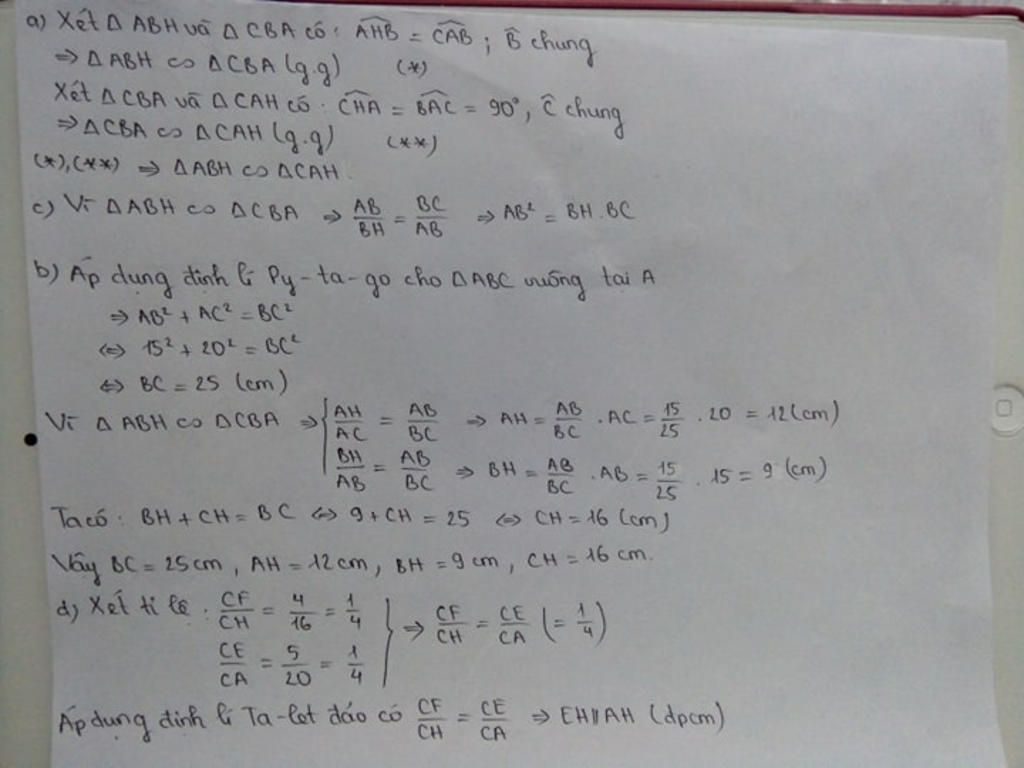 a) Xét Δ ABH và Δ CBA có: $\widehat{AHB}$ = $\widehat{CAB}$ ; $\widehat{B}$ chung
⇒ ΔABH ∽ ΔCBA (g.g) (*)
Xét ΔCBA và ΔCAH có: $\widehat{CHA}$ = $\widehat{BAC}$ = 90°, $\widehat{C}$ chung
⇒ ΔCBA ∽ ΔCAH (g.g) (**)
(*),(**) ⇒ ΔABH ∽ ΔCAH.
c) Vì ΔABH ∽ ΔCBA ⇒ $\frac{AB}{BH}$ = $\frac{BC}{AB}$ ⇒ AB² = BH.BC
b) Áp dụng định lí Py-ta-go cho ΔABC vuông tại A
⇒ AB² + AC² = BC²
⇔ 15² + 20² = BC²
⇔ BC = 25 (cm)
Vì ΔABH ∽ ΔCBA ⇒ { $\frac{AH}{AC}$ = $\frac{AB}{BC}$ ⇒ AH = $\frac{AB}{BC}$ . AC = $\frac{15}{25}$ . 20 = 12 (cm)
$\frac{BH}{AB}$ = $\frac{AB}{BC}$ ⇒ BH = $\frac{AB}{BC}$ . AB = $\frac{15}{25}$ . 15 = 9 (cm)
Ta có: BH + CH = BC ⇔ 9 + CH = 25 ⇔ CH = 16 (cm)
Vậy BC = 25cm, AH = 12cm, BH = 9 cm, CH = 16 cm.
d) Xét tỉ lệ: $\frac{CF}{CH}$ = $\frac{4}{16}$ = $\frac{1}{4}$ } ⇒ $\frac{CF}{CH}$ = $\frac{CE}{CA}$ (= $\frac{1}{4}$)
$\frac{CE}{CA}$ = $\frac{5}{20}$ = $\frac{1}{4}$
Áp dụng định lí Ta-let đảo có $\frac{CF}{CH}$ = $\frac{CE}{CA}$ ⇒ EH∥AH (dpcm)